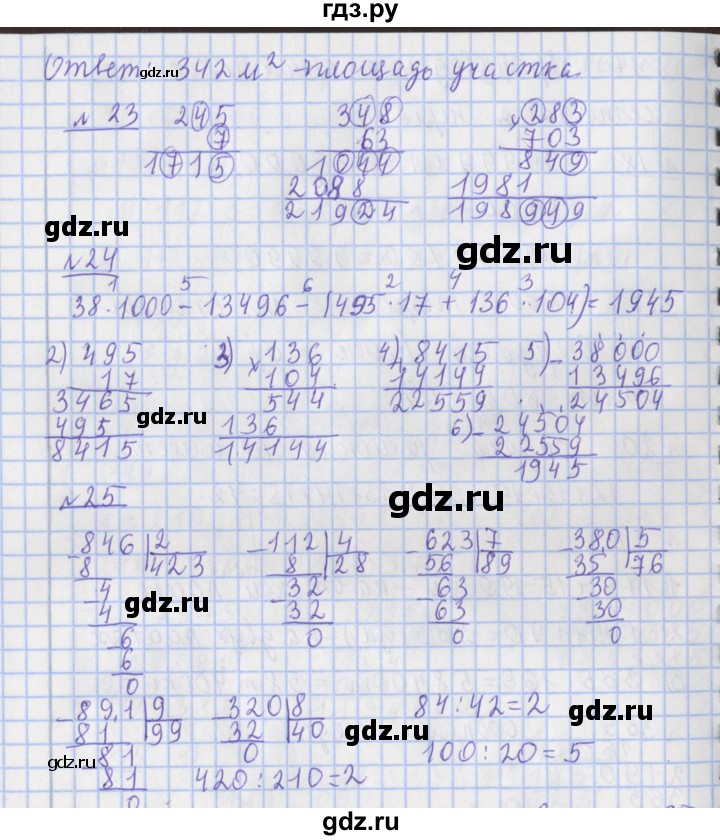 гдз.ру
Ответ: 342 м² – площадь участка
№ 23
245
7
1715
348
63
1044
2088
21924
× 283
703
849
1981
198949
№ 24
1 5 6 2 4 3
38 · 1000 – 13496 – (495 · 17 + 136 · 104) = 1945
2) 495
17
3465
495
8415
3) × 136
104
544
136
14144
4) 8415
14144
22559
5) – 38000
13496
24504
6) – 24504
22559
1945
№ 25
– 846 | 2
8 423
– 4
4
6
6
0
– 112 | 4
8 28
– 32
32
0
– 623 | 7
56 89
– 63
63
0
– 380 | 5
35 76
– 30
30
0
– 891 | 9
81 99
81
81
0
– 320 | 8
32 40
0
84 : 42 = 2
100 : 20 = 5
420 : 210 = 2
gdz.ru
gdz.ru
gdz.ru
gdz.ru
gdz.ru
gdz.ru
gdz.ru
gdz.ru
gdz.ru
gdz.ru
gdz.ru